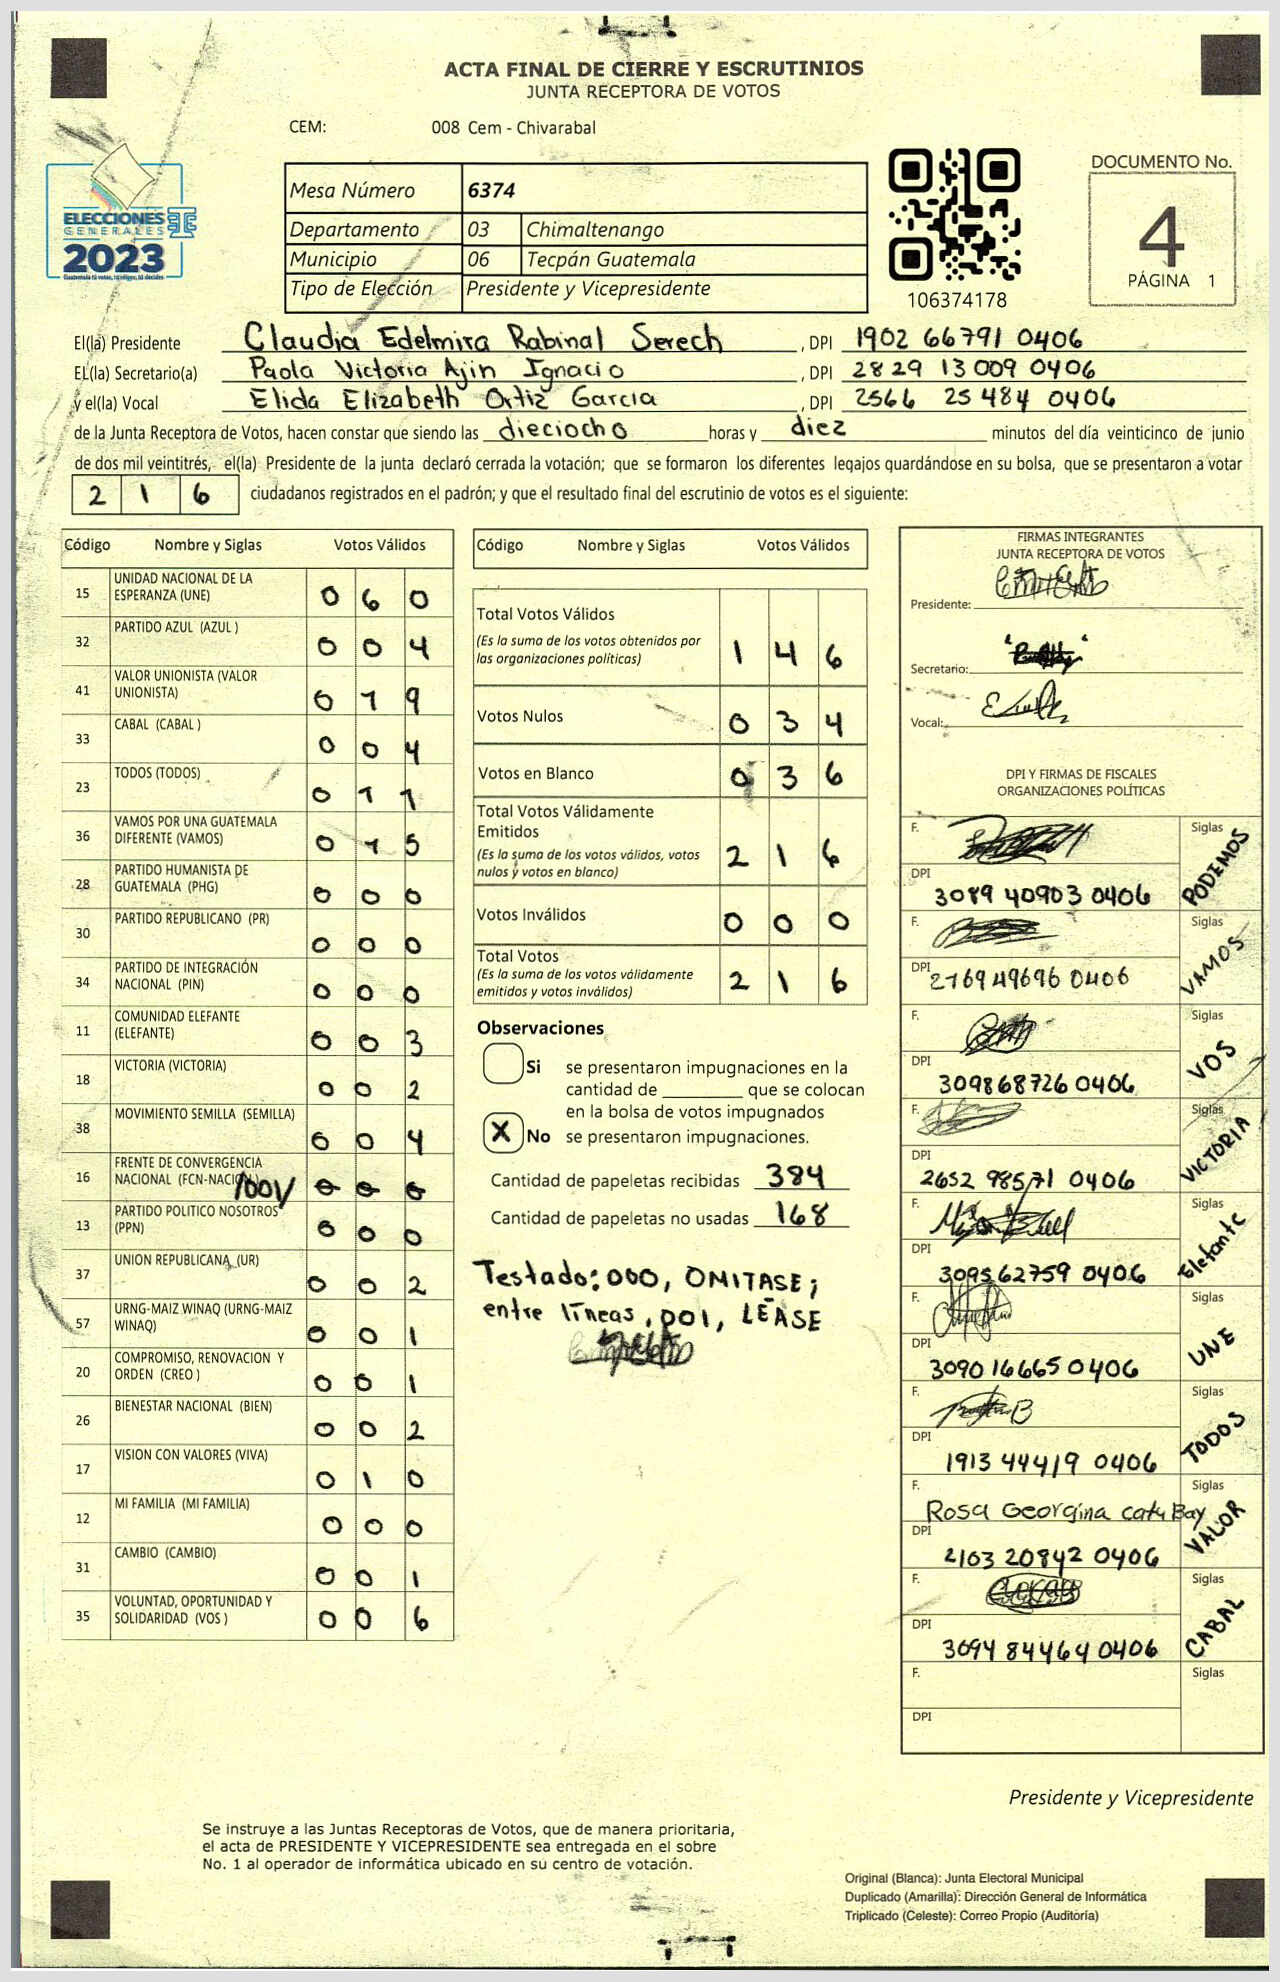 ACTA FINAL DE CIERRE Y ESCRUTINIOS
JUNTA RECEPTORA DE VOTOS
CEM: 008 Cem - Chivarabal
ELECCIONES
GENERALES
2023
Guatemala tú votas, tú eliges, tú decides
Mesa Número 6374
Departamento 03 Chimaltenango
Municipio 06 Tecpán Guatemala
Tipo de Elección Presidente y Vicepresidente
106374178
DOCUMENTO No.
4
PÁGINA 1
El(la) Presidente Claudia Edelmira Rabinal Serech , DPI 1902 66791 0406
EL(la) Secretario(a) Paola Victoria Ajin Ignacio , DPI 2829 13009 0406
y el(la) Vocal Elida Elizabeth Ortiz Garcia , DPI 2566 25484 0406
de la Junta Receptora de Votos, hacen constar que siendo las dieciocho horas y diez minutos del día veinticinco de junio
de dos mil veintitrés, el(la) Presidente de la junta declaró cerrada la votación; que se formaron los diferentes legajos guardándose en su bolsa, que se presentaron a votar
2 1 6 ciudadanos registrados en el padrón; y que el resultado final del escrutinio de votos es el siguiente:
Código Nombre y Siglas Votos Válidos
15 UNIDAD NACIONAL DE LA ESPERANZA (UNE) 0 6 0
32 PARTIDO AZUL (AZUL ) 0 0 4
41 VALOR UNIONISTA (VALOR UNIONISTA) 0 1 9
33 CABAL (CABAL ) 0 0 4
23 TODOS (TODOS) 0 1 1
36 VAMOS POR UNA GUATEMALA DIFERENTE (VAMOS) 0 1 5
28 PARTIDO HUMANISTA DE GUATEMALA (PHG) 0 0 0
30 PARTIDO REPUBLICANO (PR) 0 0 0
34 PARTIDO DE INTEGRACIÓN NACIONAL (PIN) 0 0 0
11 COMUNIDAD ELEFANTE (ELEFANTE) 0 0 3
18 VICTORIA (VICTORIA) 0 0 2
38 MOVIMIENTO SEMILLA (SEMILLA) 0 0 4
16 FRENTE DE CONVERGENCIA NACIONAL (FCN-NACION) /001/ 0 0 0
13 PARTIDO POLITICO NOSOTROS (PPN) 0 0 0
37 UNION REPUBLICANA (UR) 0 0 2
57 URNG-MAIZ WINAQ (URNG-MAIZ WINAQ) 0 0 1
20 COMPROMISO, RENOVACION Y ORDEN (CREO ) 0 0 1
26 BIENESTAR NACIONAL (BIEN) 0 0 2
17 VISION CON VALORES (VIVA) 0 1 0
12 MI FAMILIA (MI FAMILIA) 0 0 0
31 CAMBIO (CAMBIO) 0 0 1
35 VOLUNTAD, OPORTUNIDAD Y SOLIDARIDAD (VOS ) 0 0 6
Código Nombre y Siglas Votos Válidos
Total Votos Válidos
(Es la suma de los votos obtenidos por
las organizaciones políticas) 1 4 6
Votos Nulos 0 3 4
Votos en Blanco 0 3 6
Total Votos Válidamente
Emitidos
(Es la suma de los votos válidos, votos
nulos y votos en blanco) 2 1 6
Votos Inválidos 0 0 0
Total Votos
(Es la suma de los votos válidamente
emitidos y votos inválidos) 2 1 6
Observaciones
Si se presentaron impugnaciones en la
cantidad de ________ que se colocan
en la bolsa de votos impugnados
X No se presentaron impugnaciones.
Cantidad de papeletas recibidas 384
Cantidad de papeletas no usadas 168
Testado: 000, OMITASE;
entre líneas, 001, LÉASE
FIRMAS INTEGRANTES
JUNTA RECEPTORA DE VOTOS
Presidente:
Secretario:
Vocal:
DPI Y FIRMAS DE FISCALES
ORGANIZACIONES POLÍTICAS
F. Siglas PODEMOS
DPI 3089 40903 0406
F. Siglas VAMOS
DPI 2769 49696 0406
F. Siglas VOS
DPI 3098 68726 0406
F. Siglas VICTORIA
DPI 2652 98571 0406
F. Siglas Elefante
DPI 3095 62759 0406
F. Siglas UNE
DPI 3090 16665 0406
F. Siglas TODOS
DPI 1913 44419 0406
F. Rosa Georgina Catu Bay Siglas VALOR
DPI 2103 20842 0406
F. Siglas CABAL
DPI 3094 84464 0406
F. Siglas
DPI
Presidente y Vicepresidente
Se instruye a las Juntas Receptoras de Votos, que de manera prioritaria,
el acta de PRESIDENTE Y VICEPRESIDENTE sea entregada en el sobre
No. 1 al operador de informática ubicado en su centro de votación.
Original (Blanca): Junta Electoral Municipal
Duplicado (Amarilla): Dirección General de Informática
Triplicado (Celeste): Correo Propio (Auditoría)